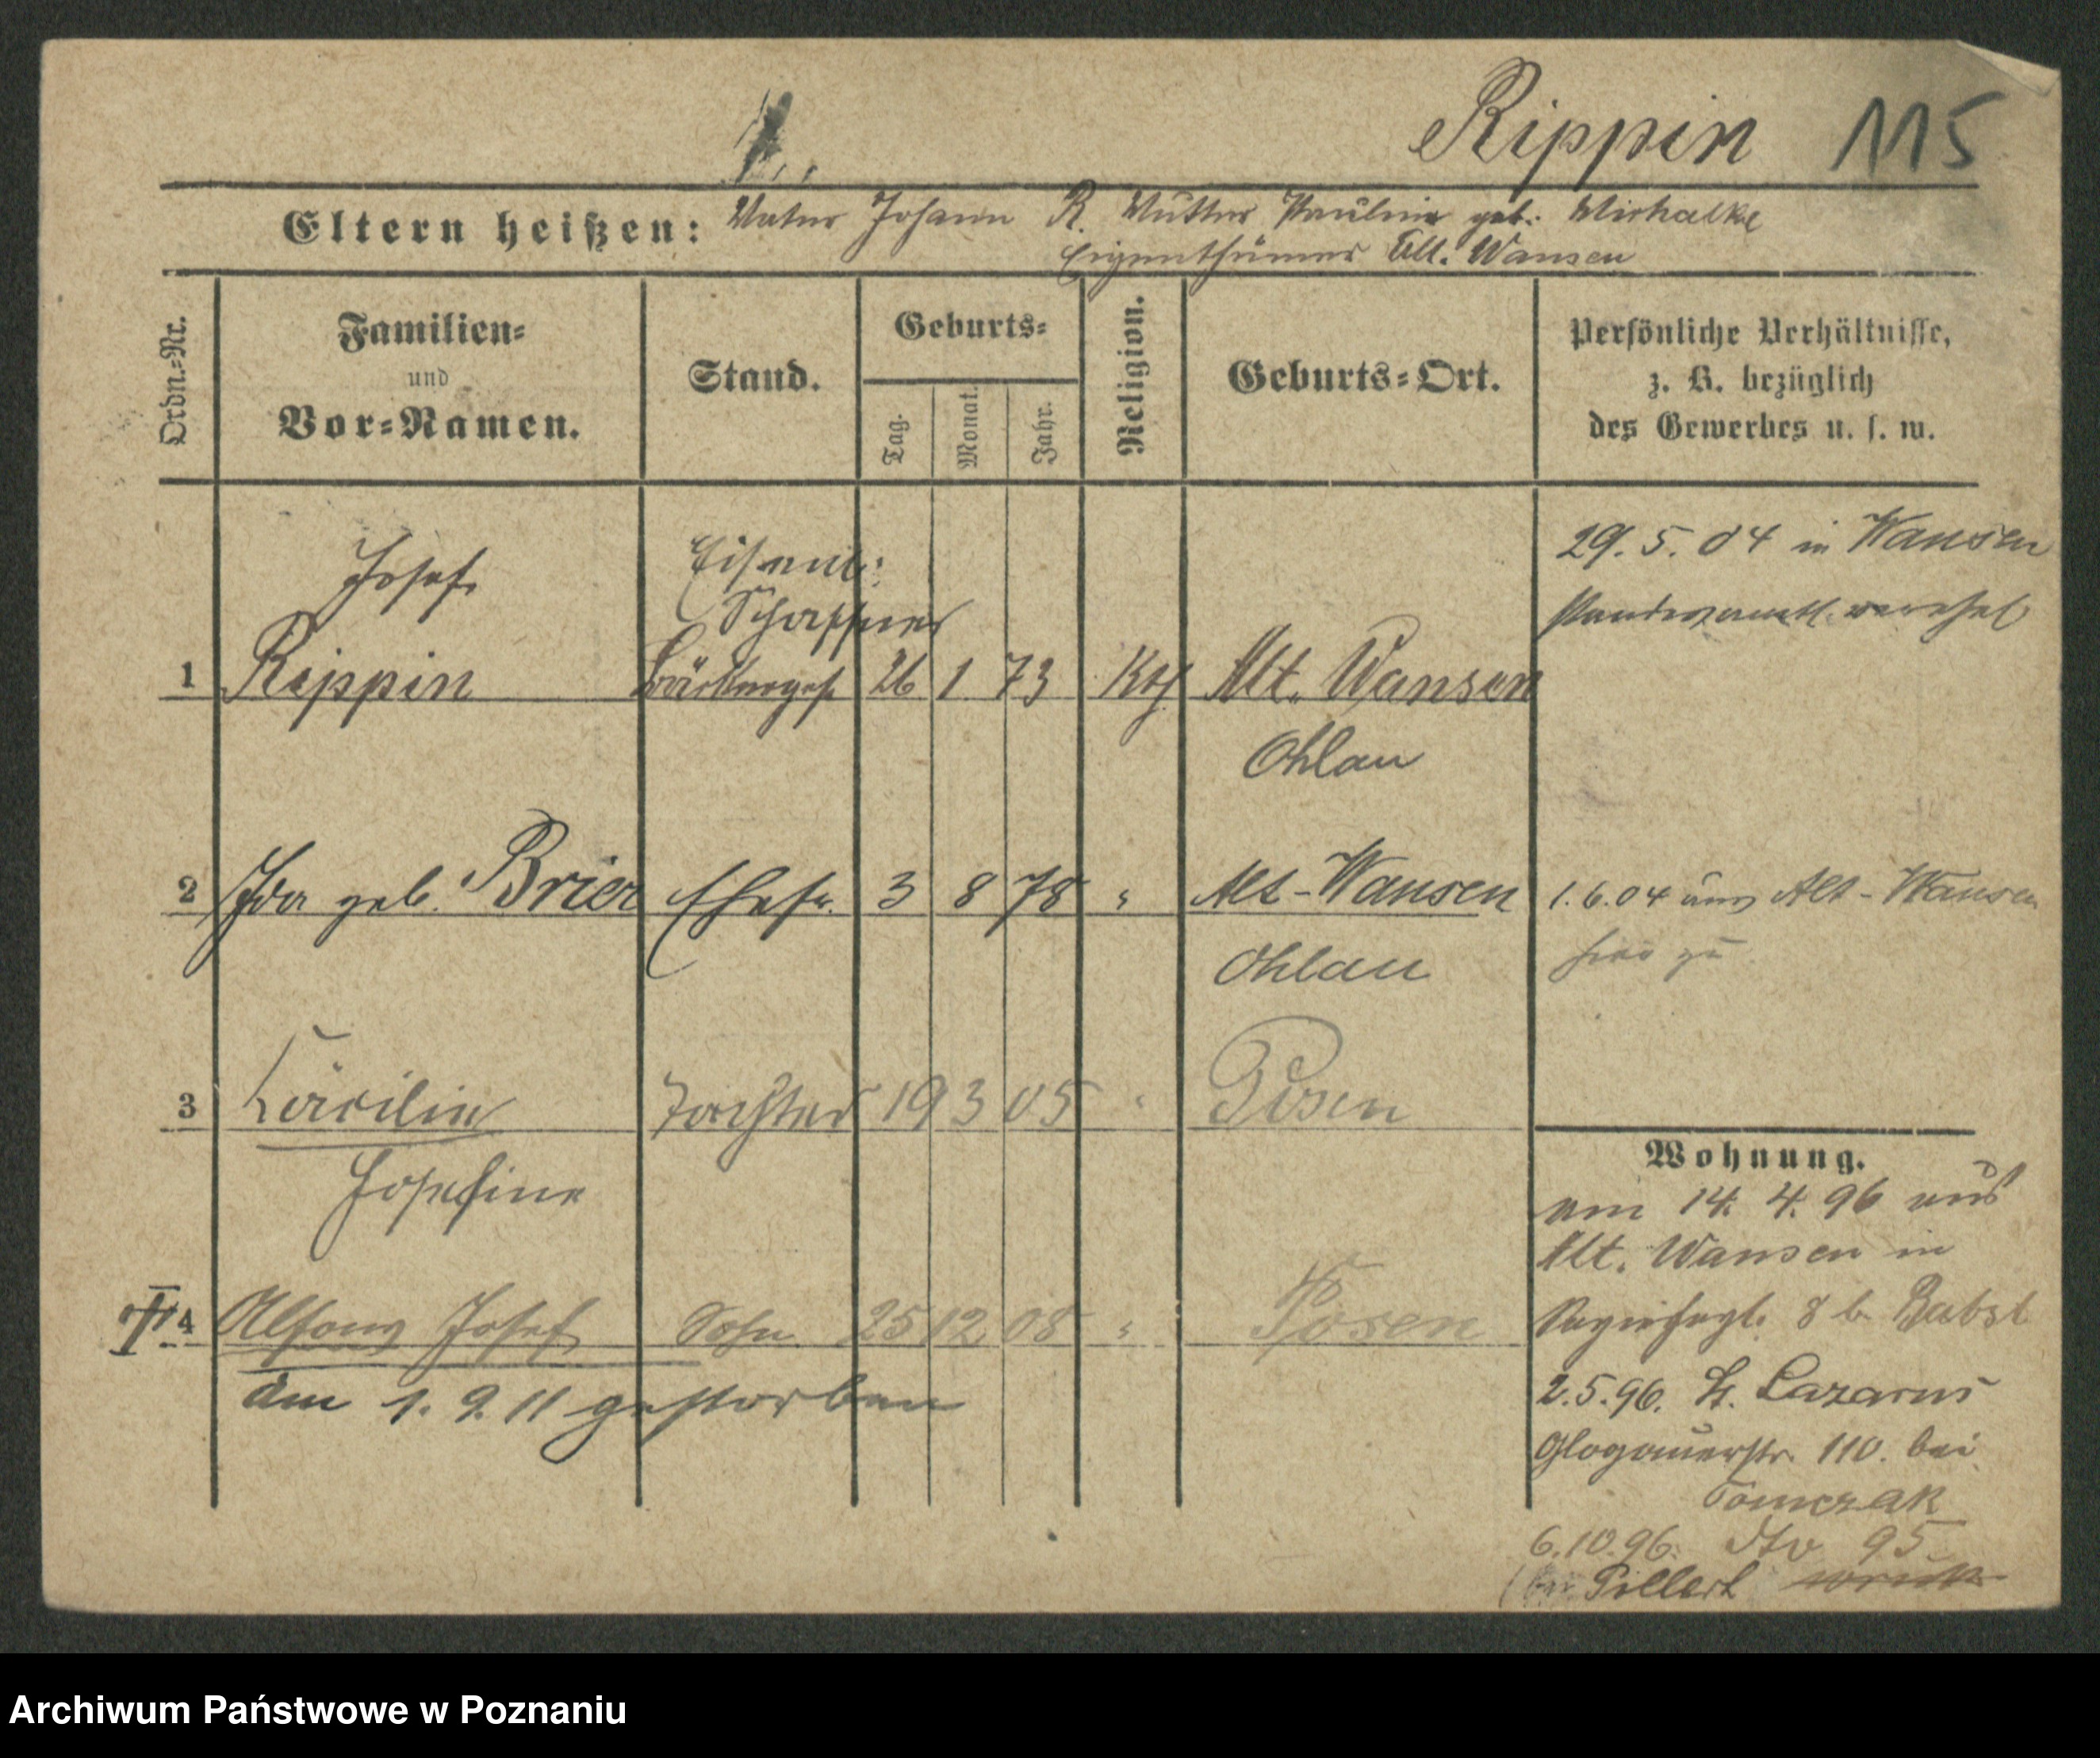 Rippin 115
Eltern heißen: Vater Johann R. Mutter Pauline geb. Mischalke
Eigenthümer Alt. Wansen
Ordn.-Nr.
Familien-
und
Vor-Namen.
Stand.
Geburts-
Tag.
Monat.
Jahr.
Religion.
Geburts-Ort.
Persönliche Verhältnisse,
z. B. bezüglich
des Gewerbes u. s. w.
29. 5. 04 in Wansen
standesamtl. verehel
Josef
Eisenb:
Schaffner
1 Rippin Bäckerges 26 1 73 Kth Alt. Wansen
Ohlau
2 Ida geb. Brier Ehefr. 3 8 78 " Alt-Wansen
Ohlau
1. 6. 04 aus Alt-Wansen
hier zu
3 Cäcilie Tochter 19 3 05 " Posen
Josefine
4 Alfons Josef Sohn 25 12 08 " Posen
am 1. 9. 11 gestorben
Wohnung.
am 14. 4. 96 aus
Alt. Wansen in
8 b Babst
2. 5. 96. St. Lazarus
Glogauerstr. 110. bei
Tomczak
6. 10. 96. dto 95
bei Pillert
Archiwum Państwowe w Poznaniu